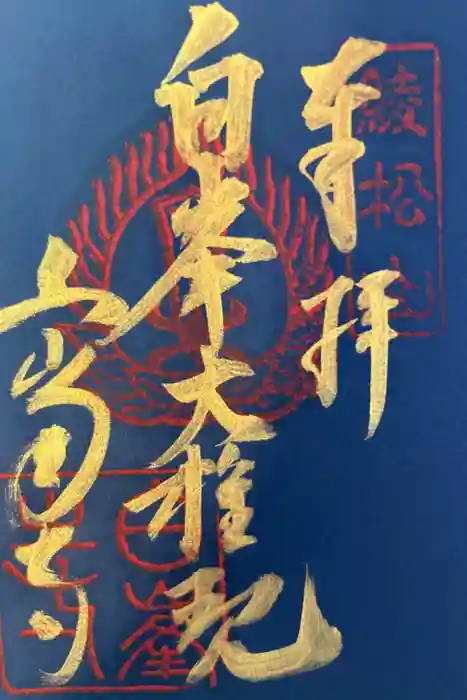 奉拝
綾松山
白峯大権現
白峯寺